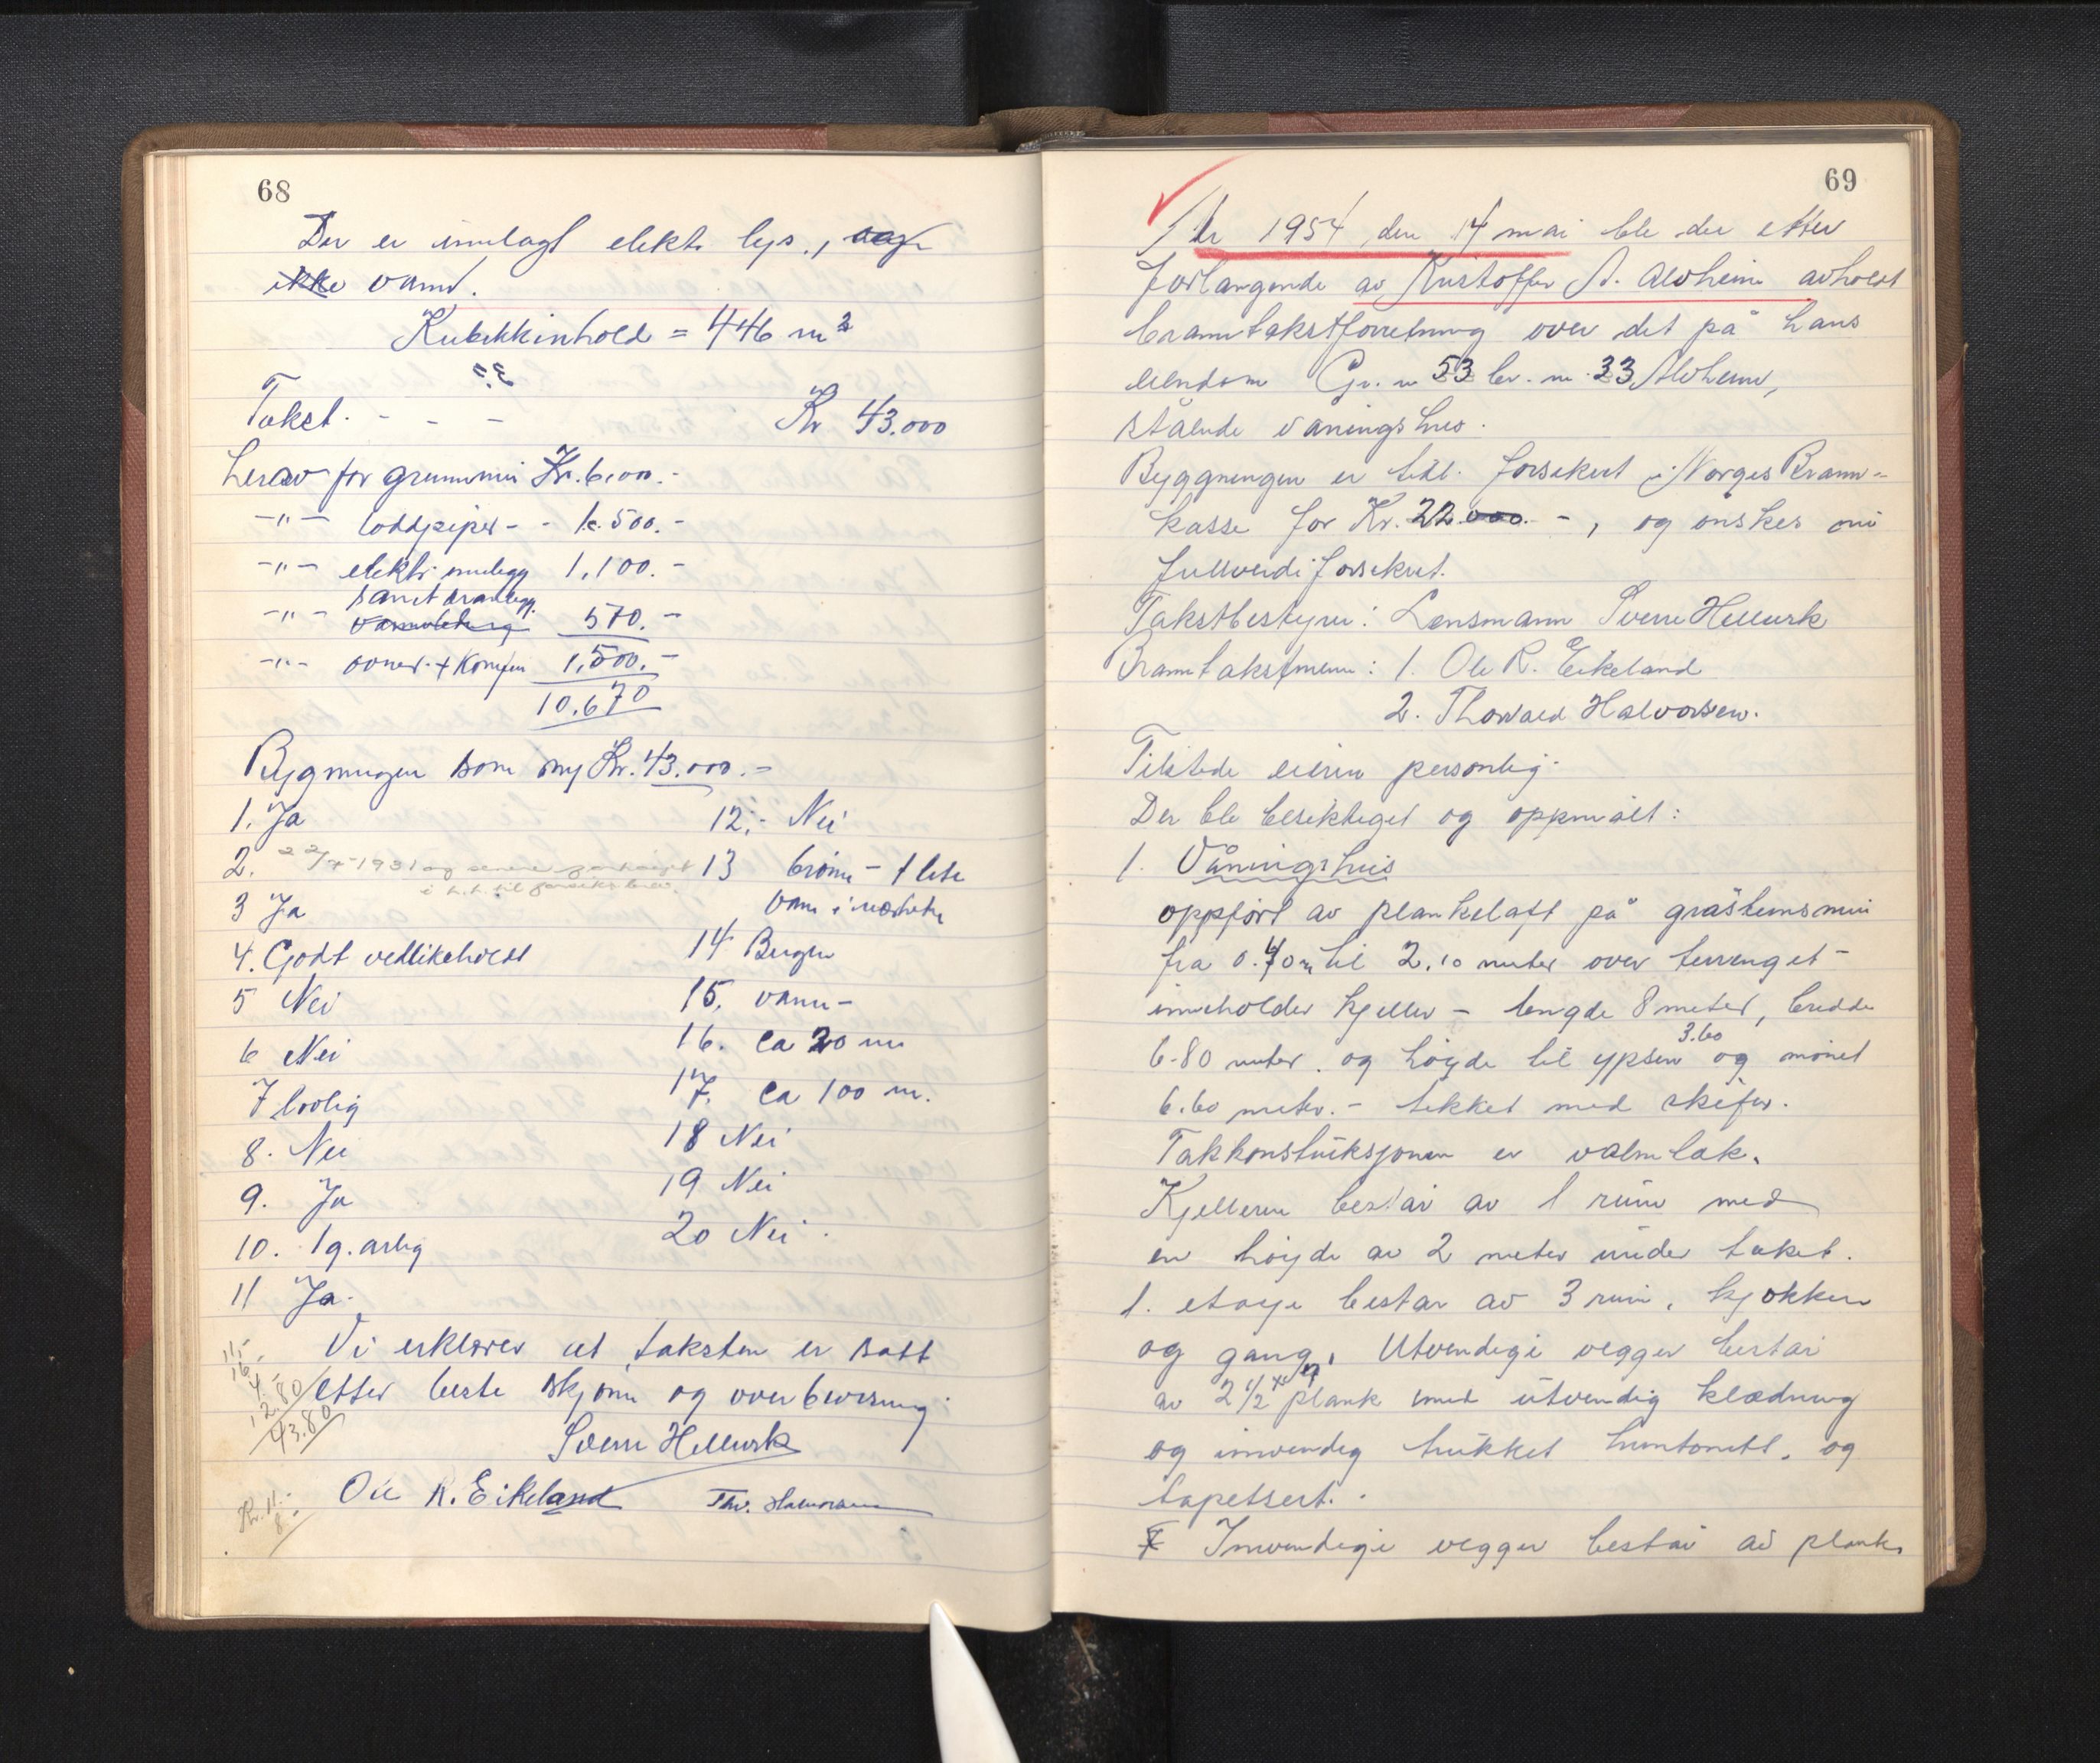 68
Der er innlagt elektr. lys., og
ikke vann.
Kubikkinhold = 446 m3
Takst. - - - Kr 43.000
herav for grunnmur Kr. 6.000.-
-"- loddpiper - - k. 1.500.-
-"- elektr. innlegg 1,100.-
sanit æranlegg.
-"- vannledning 570.-
-"- ovner + Komfyr 1,500.-
10.670
Bygningen som ny Kr. 43.000.-
1. Ja
2. 22/7-1931 og senere
i h.t. til forsikr.brev.
3 Ja
4. Godt vedlikeholdt
5 Nei
6 Nei
7 bolig
8. Nei
9. Ja
10. 1 g. årlig
11 Ja.
12.- Nei
13 brønn - 1 lite
vann i nærheten
14 Bergen
15. vann-
16. ca 20 m
17. ca 100 m.
18 Nei
19 Nei
20 Nei.
Vi erklærer at taksten er satt
etter beste skjønn og overbevisning
Sverre Hellesvik
Ole R. Eikeland Thv. Halvorsen
11.-
16.-
4.-
12.80
43.80
Kr. 11.-
8.-
69
År 1954 den 14 mai ble der etter
forlangende av Kristoffer A. Alvheim avholdt
branntakstforretning over det på hans
eiendom Gr. n 53 br. n. 33 Alvheim,
stående våningshus.
Byggningen er tidl. forsikret i Norges Brann-
kasse for Kr. 22.000.-, og ønskes nu
fullverdiforsikret.
Takstbestyrer: Lensmann Sverre Hellesvik
Branntakstmenn: 1. Ole R. Eikeland
2. Thorvald Halvorsen.
Tilstede eieren personlig.
Der ble besiktiget og oppmålt:
1. Våningshus
oppført av plankelaft på gråsteinsmur
fra 0.40 m til 2.10 meter over terrenget -
inneholder kjeller - lengde 8 meter, bredde
3.60
6.80 meter. og høyde til gesims og mønet
6.60 meter. - tekket med skifer.
Takkonstruksjonen er valmtak.
Kjelleren består av 1 rum med
en høyde av 2 meter under taket.
1. etasje består av 3 rum, kjøkken
og gang. Utvendige vegger består
av 2 1/2" plank med utvendig klædning
og innvendig trukket huntonitt. og
tapetsert.
Innvendige vegger består av plank